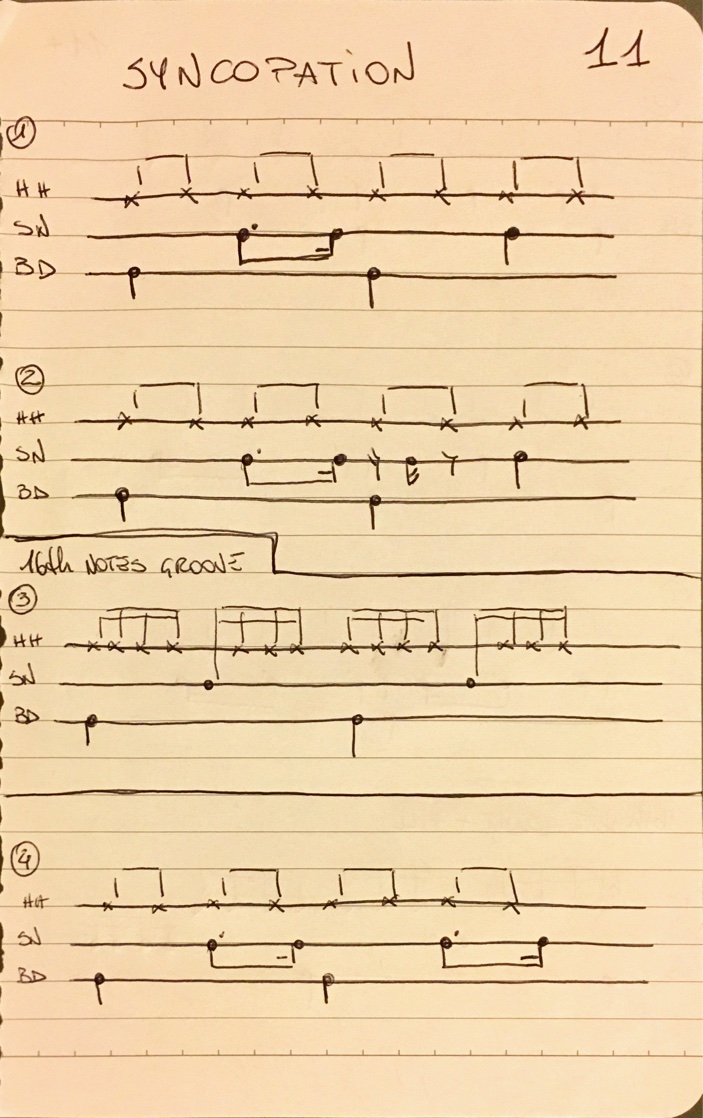 SYNCOPATION 11
1
HH
SN
BD
2
HH
SN
BD
16th NOTES GROOVE
3
HH
SN
BD
4
HH
SN
BD